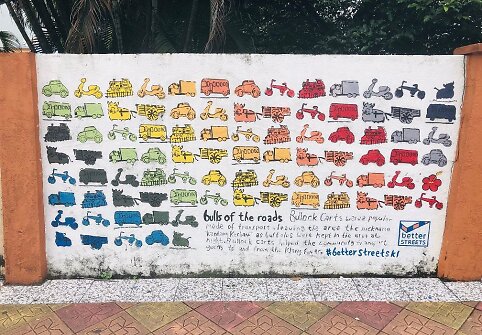 bulls of the roads Bullock Carts were popular
mode of transport, leaving the area the nickname
Kandang Kerbau as buffaloes were kept in the area at
night. Bullock carts helped the community transport
goods to and from the Klang River. #betterstreetsKL
better
STREETS